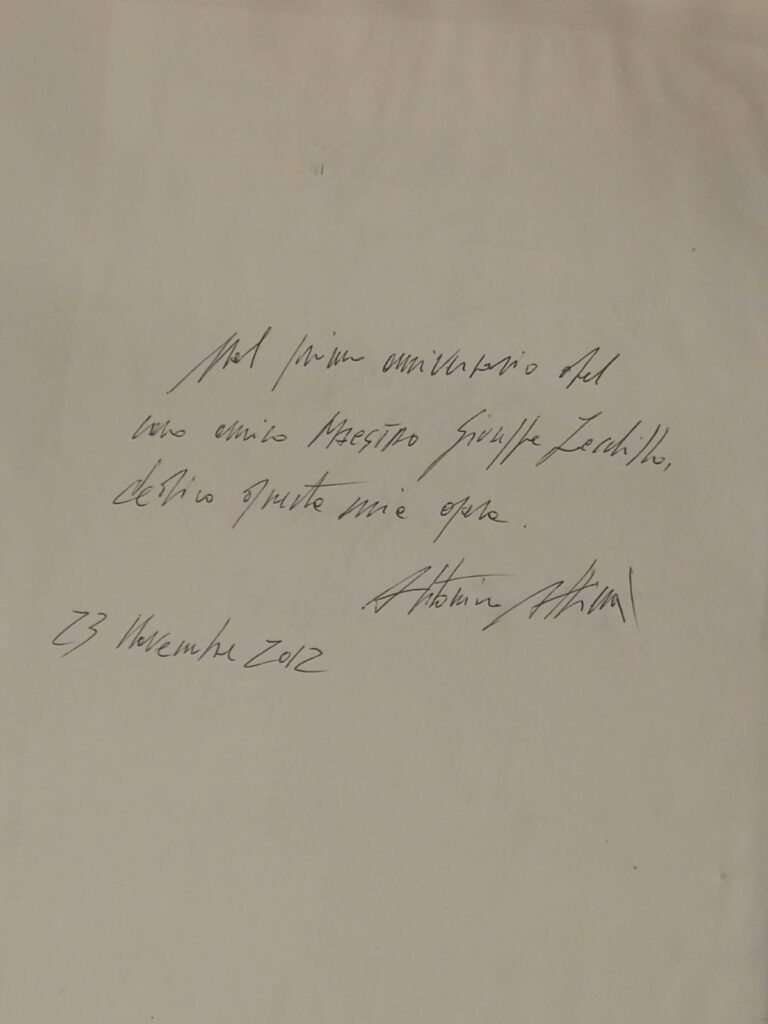 Nel primo anniversario del
caro amico MAESTRO Giuseppe Zecchillo,
dedico questa mia opera.
Antonino Attinà
23 Novembre 2012